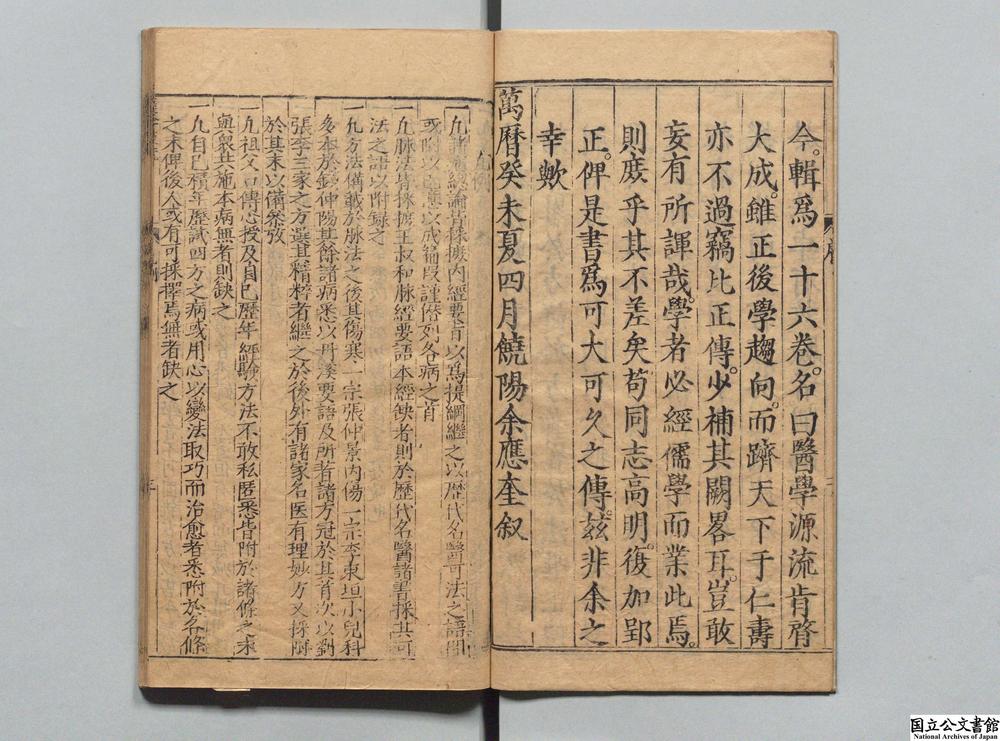 今輯爲一十六卷名曰醫學源流肯綮
大成雖正後學趨向而躋天下于仁壽
亦不過竊比正傳少補其闕畧耳豈敢
妄有所諢哉學者必經儒學而業此焉
則庶乎其不差矣苟同志高明復加郢
正俾是書爲可大可久之傳玆非余之
幸歟
萬曆癸未夏四月饒陽余應奎叙
一凡諸病總論皆採摭內經要旨以爲提綱繼之以歷代名醫可法之語間
或附以己意以成編段謹僭列各病之首
一凡脉法皆採摭王叔和脉經要語本經缺者則於歷代名醫諸書採其可
法之語以附錄之
一凡方法備載於脉法之後其傷寒一宗張仲景內傷一宗李東垣小兒科
多本於錢仲陽其餘諸病悉以丹溪要語及所著諸方冠於其首次以劉
張李三家之方選其精粹者繼之於後外有諸家名医有理妙方又採附
於其末以備叅攷
一凡祖父口傳心授及自己歷年經驗方法不敢私匿悉皆附於諸條之末
與衆共施本病無者則缺之
一凡自己積年歷試四方之病或用心以變法取巧而治愈者悉附於各條
之末俾後人或有可採擇焉無者缺之
三
国立公文書館
National Archives of Japan